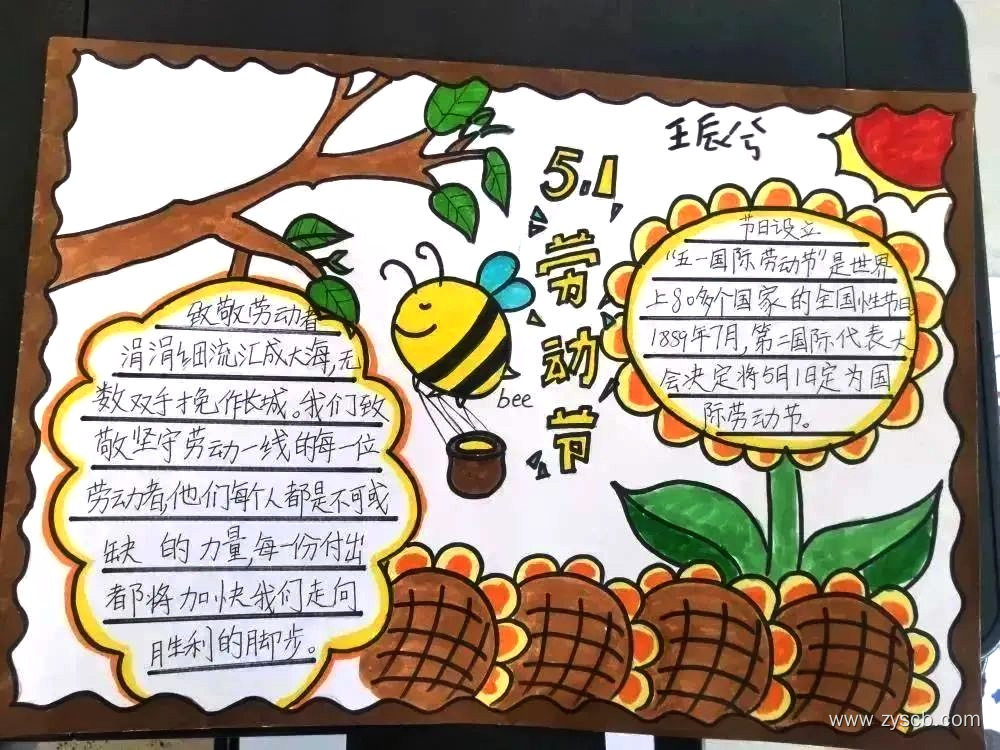 王辰兮
5.1
劳动节
致敬劳动者
涓涓细流汇成大海,无
数双手挽作长城。我们致
敬坚守劳动一线的每一位
劳动者,他们每个人都是不可或
缺 的力量,每一份付出
都将加快我们走向
胜利的脚步。
bee
节日设立
“五一国际劳动节”是世界
上80多个国家的全国性节日
1889年7月,第二国际代表大
会决定将5月1日定为国
际劳动节。
www.zyscb.com